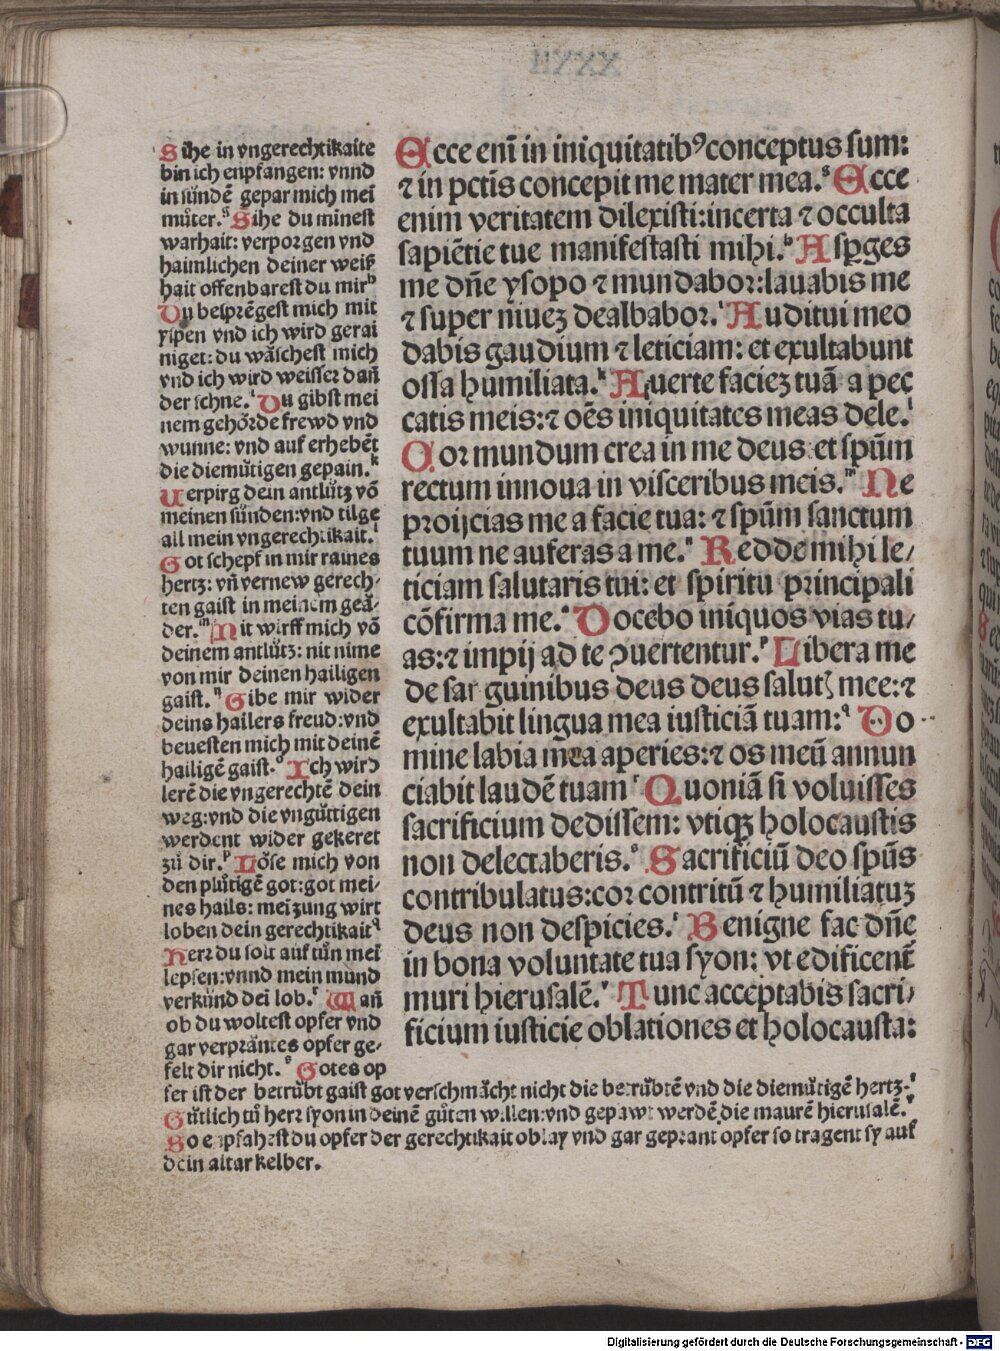 Sihe in vngerechtikaite
bin ich enpfangen: vnnd
in sündē gepar mich mei
müter.g Sihe du minest
warhait: verporgen vnd
haimlichen deiner weiß
hait offenbarest du mirh
Du besprēgest mich mit
yspen vnd ich wird gerai
niget: du wäschest mich
vnd ich wird weisser dañ
der schne.i Du gibst mei
nem gehörde frewd vnd
wunne: vnd auf erhebēt
die diemütigen gepain.k
Uerpirg dein antlütz vō
meinen sünden: vnd tilge
all mein vngerechtikait.l
Got schepf in mir raines
hertz: vñ vernew gerech-
ten gaist in meinem geä-
der.m Nit wirff mich vō
deinem antlütz: nit nime
von mir deinen hailigen
gaist.n Gibe mir wider
deins hailers freud: vnd
bevesten mich mit deinē
hailigē gaist.o Ich wird
lerē die vngerechtē dein
weg: vnd die vngüttigen
werdent wider gekeret
zü dir.p Löse mich von
den plütigē got: got mei-
nes hails: mei zung wirt
loben dein gerechtikaitq
Herr du solt auf tün mei
lepsen: vnnd mein mund
verkünd dei lob.r Wañ
ob du woltest opfer vnd
gar verprāntes opfer ge-
felt dir nicht.s Gotes op
fer ist der betrübt gaist got verschmächt nicht die betrübtē vnd die diemütigē hertz.t
Gütlich tü herr syon in deinē güten willen: vnd gepawt werdē die maurē hierusalē.v
So enpfahest du opfer der gerechtikait oblay vnd gar geprant opfer so tragent sy auf
dein altar kelber.
Ecce enī in iniquitatibꝰ conceptus sum:
⁊ in pctīs concepit me mater mea.g Ecce
enim veritatem dilexisti: incerta ⁊ occulta
sapiētie tue manifestasti mihi.h Aspges
me dñe ysopo ⁊ mundabor: lauabis me
⁊ super niueʒ dealbabor.i Auditui meo
dabis gaudium ⁊ leticiam: et exultabunt
ossa humiliata.k Auerte facieʒ tuā a pec
catis meis: ⁊ oēs iniquitates meas dele.l
Cor mundum crea in me deus: et spūm
rectum innoua in visceribus meis.m Ne
proijcias me a facie tua: ⁊ spūm sanctum
tuum ne auferas a me.n Redde mihi le/
ticiam salutaris tui: et spiritu principali
cōfirma me.o Docebo iniquos vias tu/
as: ⁊ impij ad te ꝯuertentur.p Libera me
de sanguinibus deus deus salutꝭ mee: ⁊
exultabit lingua mea iusticiā tuam:q Do
mine labia mea aperies: ⁊ os meū annun
ciabit laudē tuam r Quoniā si voluisses
sacrificium dedissem: vtiqʒ holocaustis
non delectaberis.s Sacrificiū deo spūs
contribulatus: cor contritū ⁊ humiliatuʒ
deus non despicies.t Benigne fac dñe
in bona voluntate tua syon: vt edificent̄
muri hierusalē.v Tunc acceptabis sacri/
ficium iusticie oblationes et holocausta:
Digitalisierung gefördert durch die Deutsche Forschungsgemeinschaft - DFG